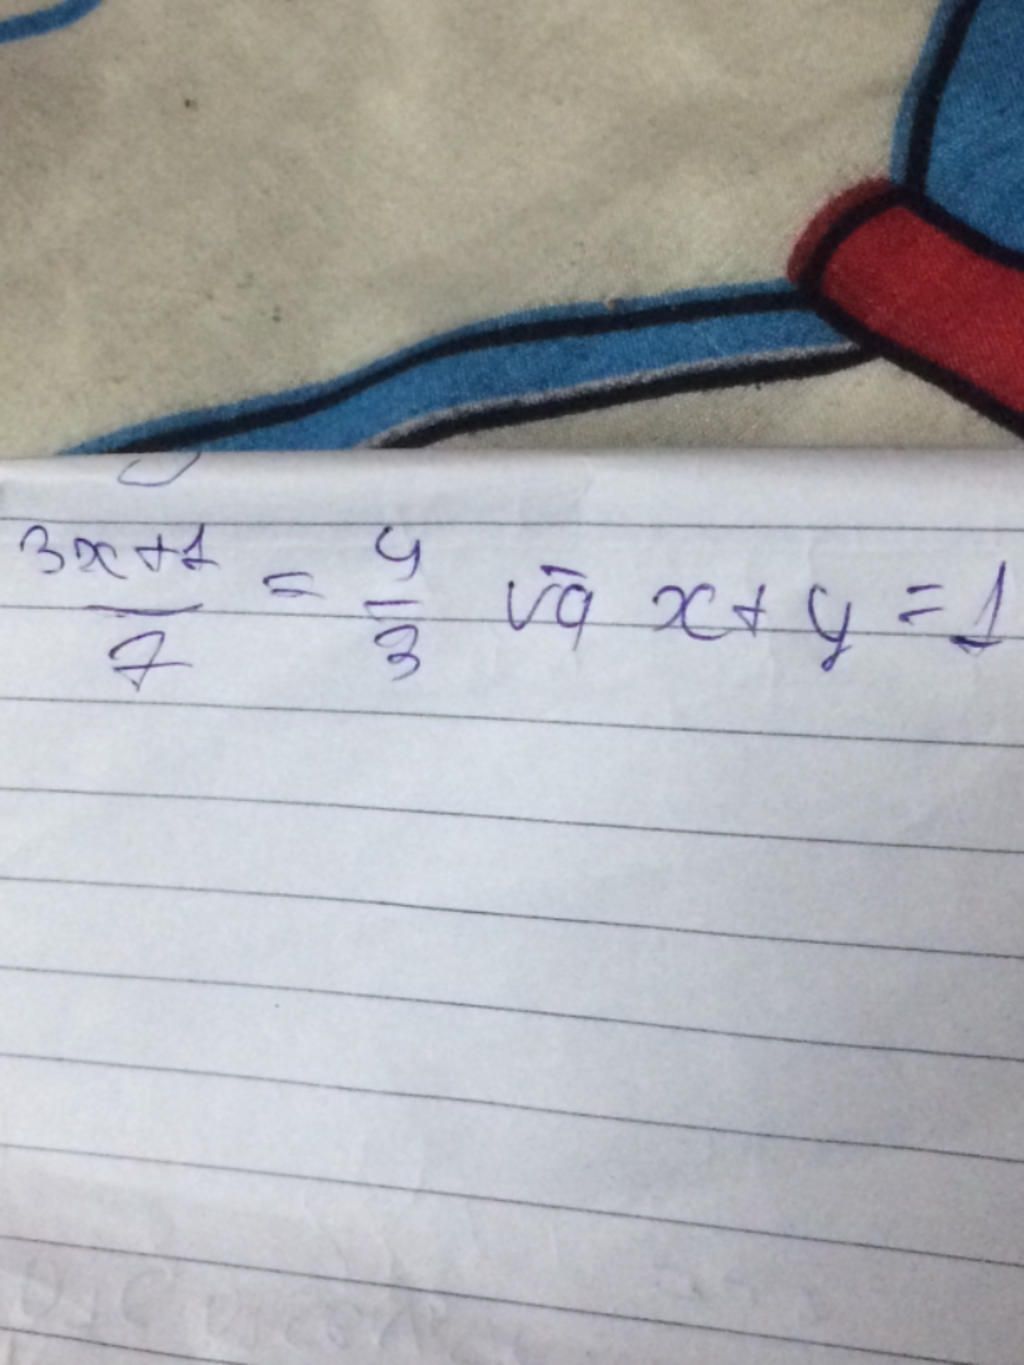 3x+1/7 = y/3 và x+y=1